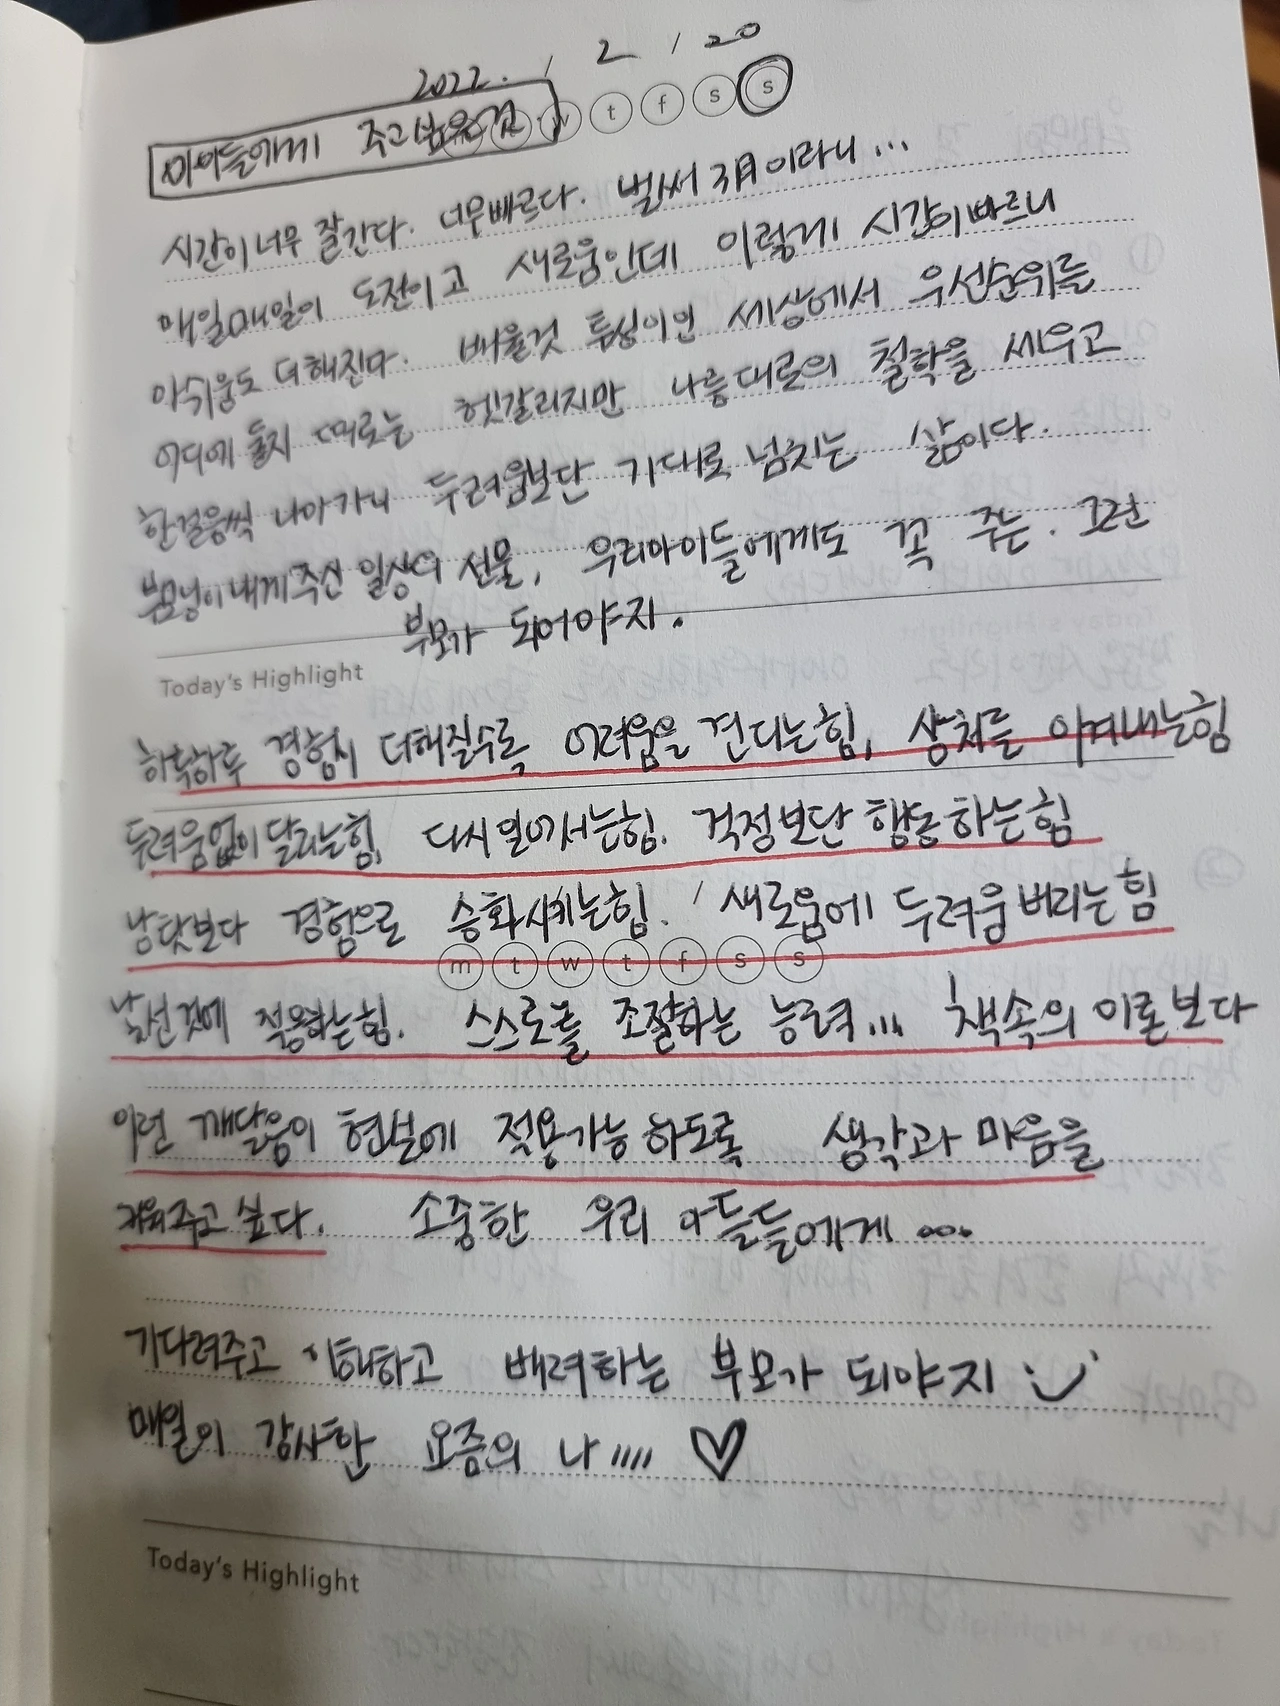 2022. / 2 / 20
아이들에게 주고싶은것
w t f s s
시간이 너무 잘간다. 너무빠르다. 벌써 3월이라니...
매일매일이 도전이고 새로움인데 이렇게 시간이빠르니
아쉬움도 더해진다. 배울것 투성이인 세상에서 우선순위를
어디에 둘지 때로는 헷갈리지만 나름대로의 철학을 세우고
한걸음씩 나아가니 두려움보단 기대로 넘치는 삶이다.
부모님이 내게주신 일상의 선물, 우리아이들에게도 꼭 주는. 그런
부모가 되어야지.
Today's Highlight
하루하루 경험치 더해질수록 어려움을 견디는힘, 상처를 이겨내는힘
두려움없이 달리는힘, 다시일어서는힘. 걱정보단 행동하는힘
낭탓보다 경험으로 승화시키는힘. / 새로움에 두려움버리는힘
m t w t f s s
낯선것에 적응하는힘. 스스로를 조절하는 능력... 책속의 이론보다
이런 깨달음이 현실에 적용가능하도록 생각과 마음을
키워주고 싶다. 소중한 우리 아들들에게 ...
기다려주고 이해하고 배려하는 부모가 되야지 :)
매일이 감사한 요즘의 나 //// ♡
Today's Highlight